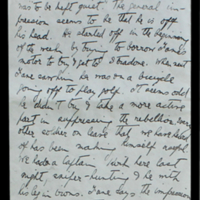 was to be kept quiet. The general im-
pression seems to be that he is off
his head. He started off in the beginning
of the week by trying to borrow Jane's
motor to try & get to London. When next
Jane saw him he was on a bicycle
going off to play golf. It seems odd
he didn't try & take a more active
part in suppressing the rebellion, every
other soldier on leave that we have heard
of has been making himself useful.
We had a Captain
night, sniper-hunting & he with
his leg in irons. Jane says the impression